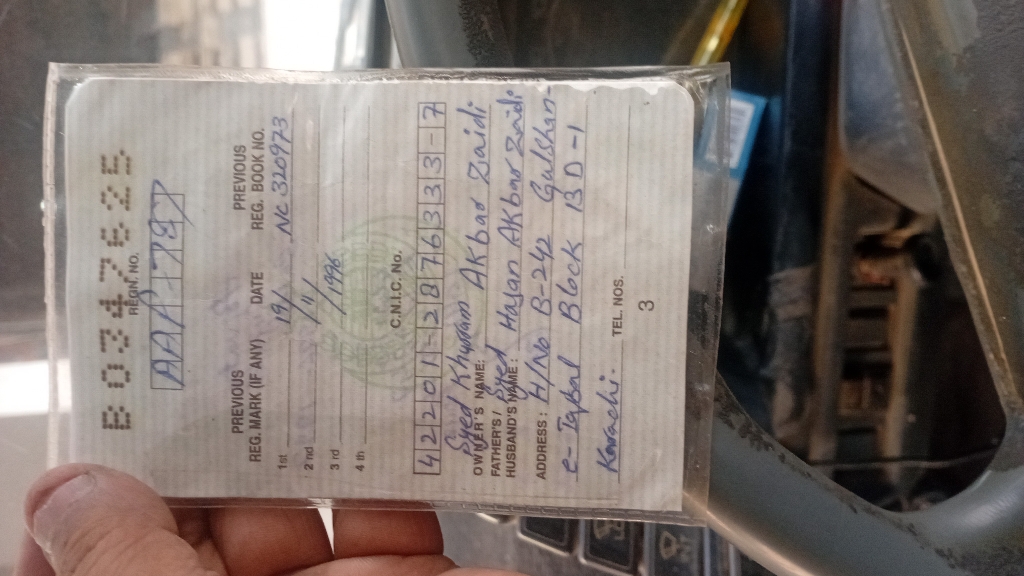 B 0347625
REGN. NO.
AAP-787
PREVIOUS REG. MARK (IF ANY) DATE PREVIOUS REG. BOOK NO.
1st 19/ Nc 320973
2nd 11
3rd /1996
4th
C.N.I.C. No.
42201-2876333-7
OWNER'S NAME: Syed Khurram Akbar Zaidi
FATHER'S / HUSBAND'S NAME: Syed Hasan Akbar Zaidi
ADDRESS: H/No B-242 Gulshan-
e-Iqbal Block 13D-1
Karachi. TEL. NOS.
3